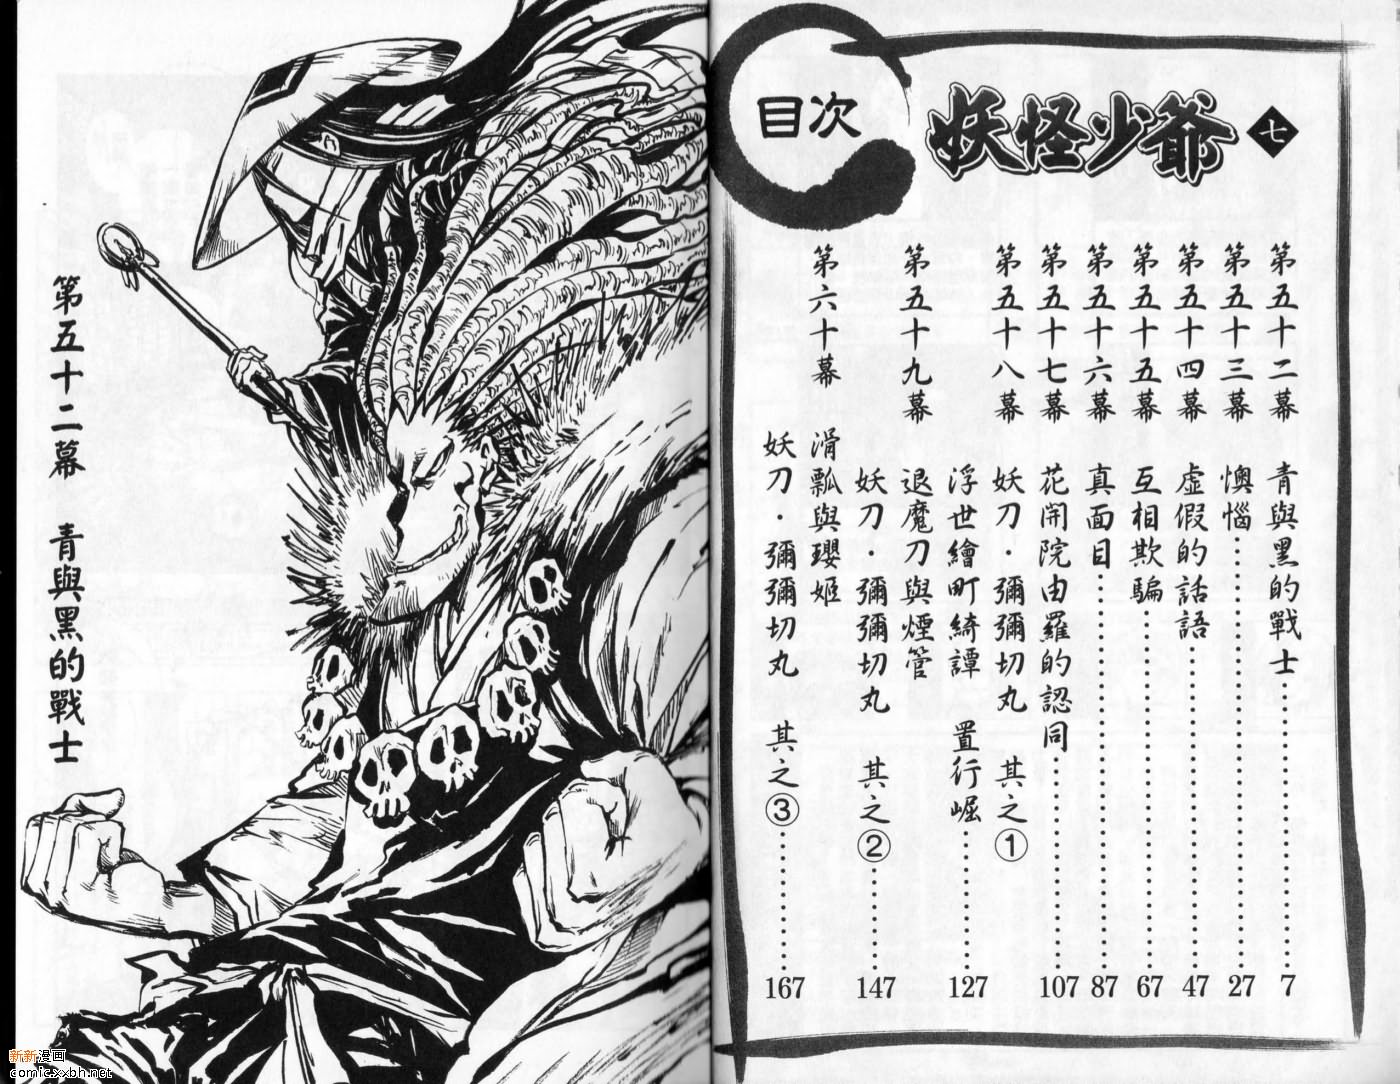 目次
妖怪少爺 七
第五十二幕 青與黑的戰士……7
第五十三幕 懊惱……27
第五十四幕 虛假的話語……47
第五十五幕 互相欺騙……67
第五十六幕 真面目……87
第五十七幕 花開院由羅的認同……107
第五十八幕 妖刀·彌彌切丸 其之①
浮世繪町綺譚 置行崛……127
第五十九幕 退魔刀與煙管
妖刀·彌彌切丸 其之②……147
第六十幕 滑瓢與瓔姬
妖刀·彌彌切丸 其之③……167
第五十二幕 青與黑的戰士
新新漫画
comic.xxbh.net